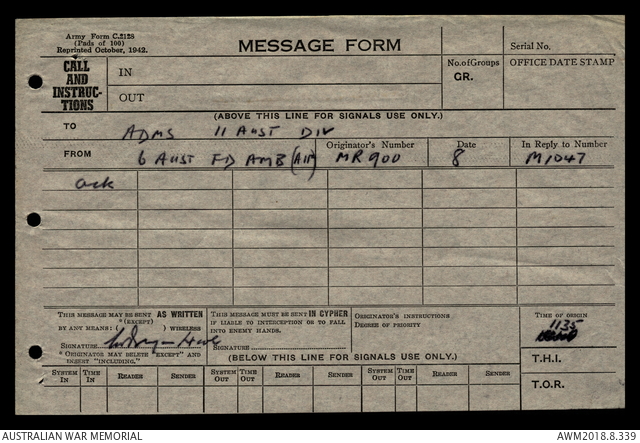 Army Form C.2128
(Pads of 100)
Reprinted October, 1942.
MESSAGE FORM
Serial No.
CALL AND INSTRUC-TIONS
IN
OUT
No. of Groups
GR.
OFFICE DATE STAMP
(ABOVE THIS LINE FOR SIGNALS USE ONLY.)
TO ADMS 11 AUST DIV
FROM 6 AUST FD AMB (AIF) Originator's Number MR900 Date 8 In Reply to Number M1047
ack
THIS MESSAGE MAY BE SENT AS WRITTEN
*(EXCEPT)
BY ANY MEANS: ( ) WIRELESS
SIGNATURE
* ORIGINATOR MAY DELETE "EXCEPT" AND
INSERT "INCLUDING."
THIS MESSAGE MUST BE SENT IN CYPHER
IF LIABLE TO INTERCEPTION OR TO FALL
INTO ENEMY HANDS.
SIGNATURE
ORIGINATOR'S INSTRUCTIONS
DEGREE OF PRIORITY
TIME OF ORIGIN
1135
T.H.I.
T.O.R.
(BELOW THIS LINE FOR SIGNALS USE ONLY.)
SYSTEM IN TIME IN READER SENDER SYSTEM OUT TIME OUT READER SENDER SYSTEM OUT TIME OUT READER SENDER
AUSTRALIAN WAR MEMORIAL
AWM2018.8.339